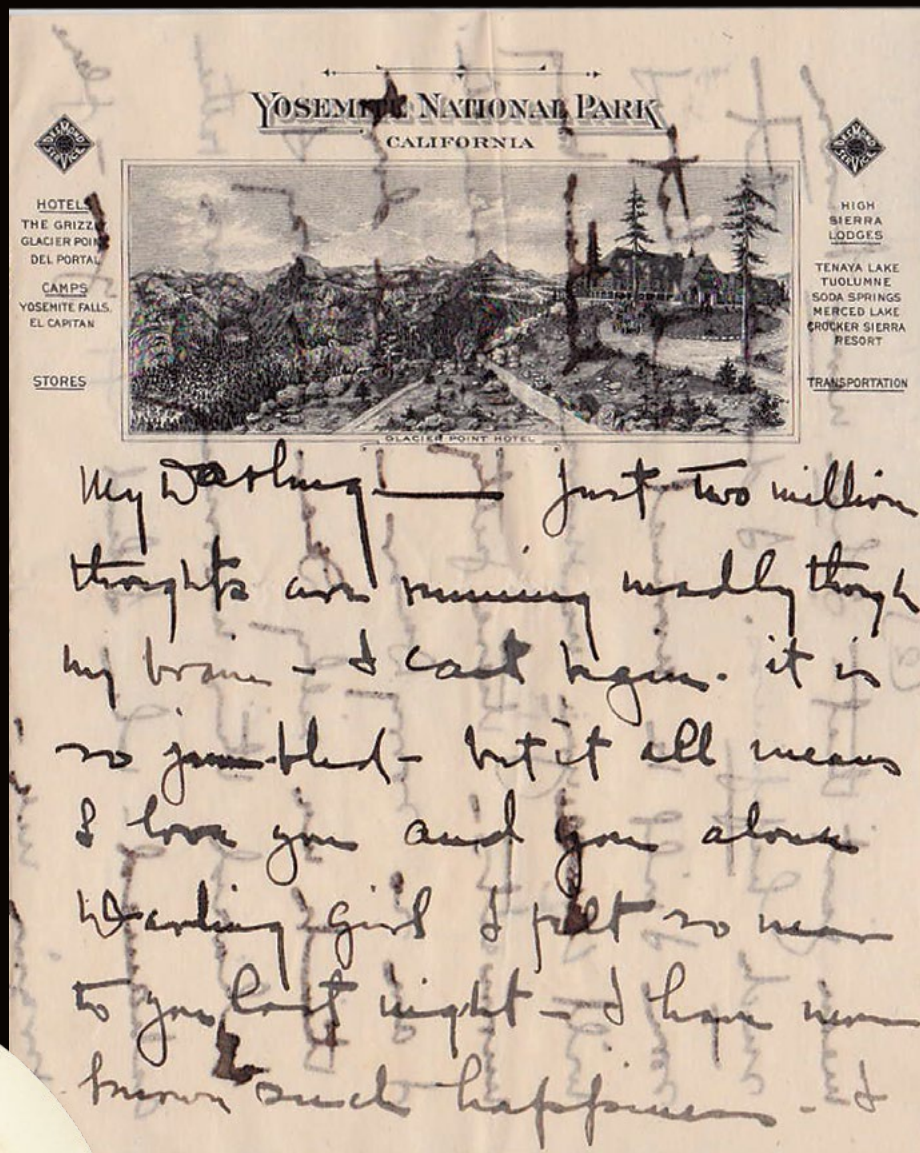 YOSEMITE NATIONAL PARK
CALIFORNIA
DESMOND SERVICE
HOTELS
THE GRIZZLY
GLACIER POINT
DEL PORTAL
CAMPS
YOSEMITE FALLS.
EL CAPITAN
STORES
DESMOND SERVICE
HIGH
SIERRA
LODGES
TENAYA LAKE
TUOLUMNE
SODA SPRINGS
MERCED LAKE
CROCKER SIERRA
RESORT
TRANSPORTATION
GLACIER POINT HOTEL
My Darling — Just two million
thoughts are running madly though
my brain - I cant begin. it is
so jumbled - but it all means
I love you and you alone
Darling girl I felt so near
to you last night - I have never
known such happiness - I